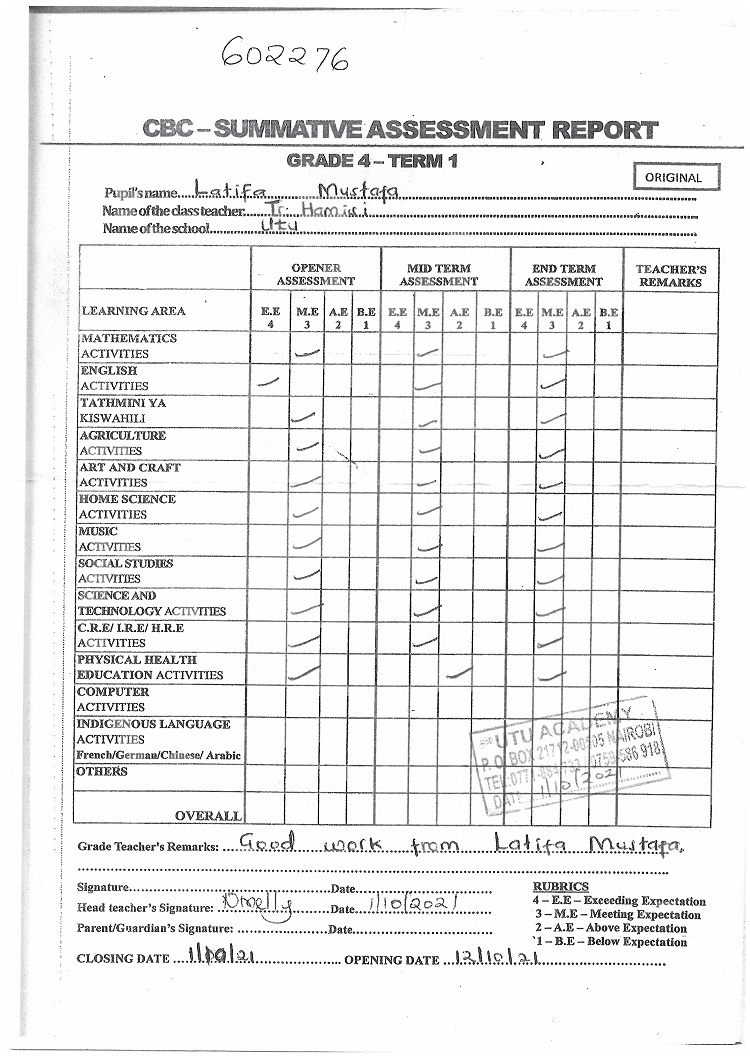 602276
CBC – SUMMATIVE ASSESSMENT REPORT
GRADE 4 – TERM 1
ORIGINAL
Pupil's name.....Latifa Mustafa
Name of the class teacher.....Tr. Hamisi
Name of the school.....Utu
OPENER ASSESSMENT MID TERM ASSESSMENT END TERM ASSESSMENT TEACHER'S REMARKS
LEARNING AREA E.E 4 M.E 3 A.E 2 B.E 1 E.E 4 M.E 3 A.E 2 B.E 1 E.E 4 M.E 3 A.E 2 B.E 1
MATHEMATICS
ACTIVITIES ✓ ✓ ✓
ENGLISH
ACTIVITIES ✓ ✓ ✓
TATHMINI YA
KISWAHILI ✓ ✓ ✓
AGRICULTURE
ACTIVITIES ✓ ✓ ✓
ART AND CRAFT
ACTIVITIES ✓ ✓ ✓
HOME SCIENCE
ACTIVITIES ✓ ✓ ✓
MUSIC
ACTIVITIES ✓ ✓ ✓
SOCIAL STUDIES
ACTIVITIES ✓ ✓ ✓
SCIENCE AND
TECHNOLOGY ACTIVITIES ✓ ✓ ✓
C.R.E/ I.R.E/ H.R.E
ACTIVITIES ✓ ✓ ✓
PHYSICAL HEALTH
EDUCATION ACTIVITIES ✓ ✓ ✓
COMPUTER
ACTIVITIES
INDIGENOUS LANGUAGE
ACTIVITIES
French/German/Chinese/ Arabic
OTHERS
OVERALL
UTU ACADEMY
P. O. BOX 21712-00505 NAIROBI
TEL:
DATE 1/10/2021
Grade Teacher's Remarks: ....Good work from Latifa Mustafa.
Signature..........Date..........
Head teacher's Signature: .......... Date ..1/10/2021
Parent/Guardian's Signature: ..........Date..........
CLOSING DATE .......... OPENING DATE ...12/10/21
RUBRICS
4 – E.E – Exceeding Expectation
3 – M.E – Meeting Expectation
2 – A.E – Above Expectation
1 – B.E – Below Expectation